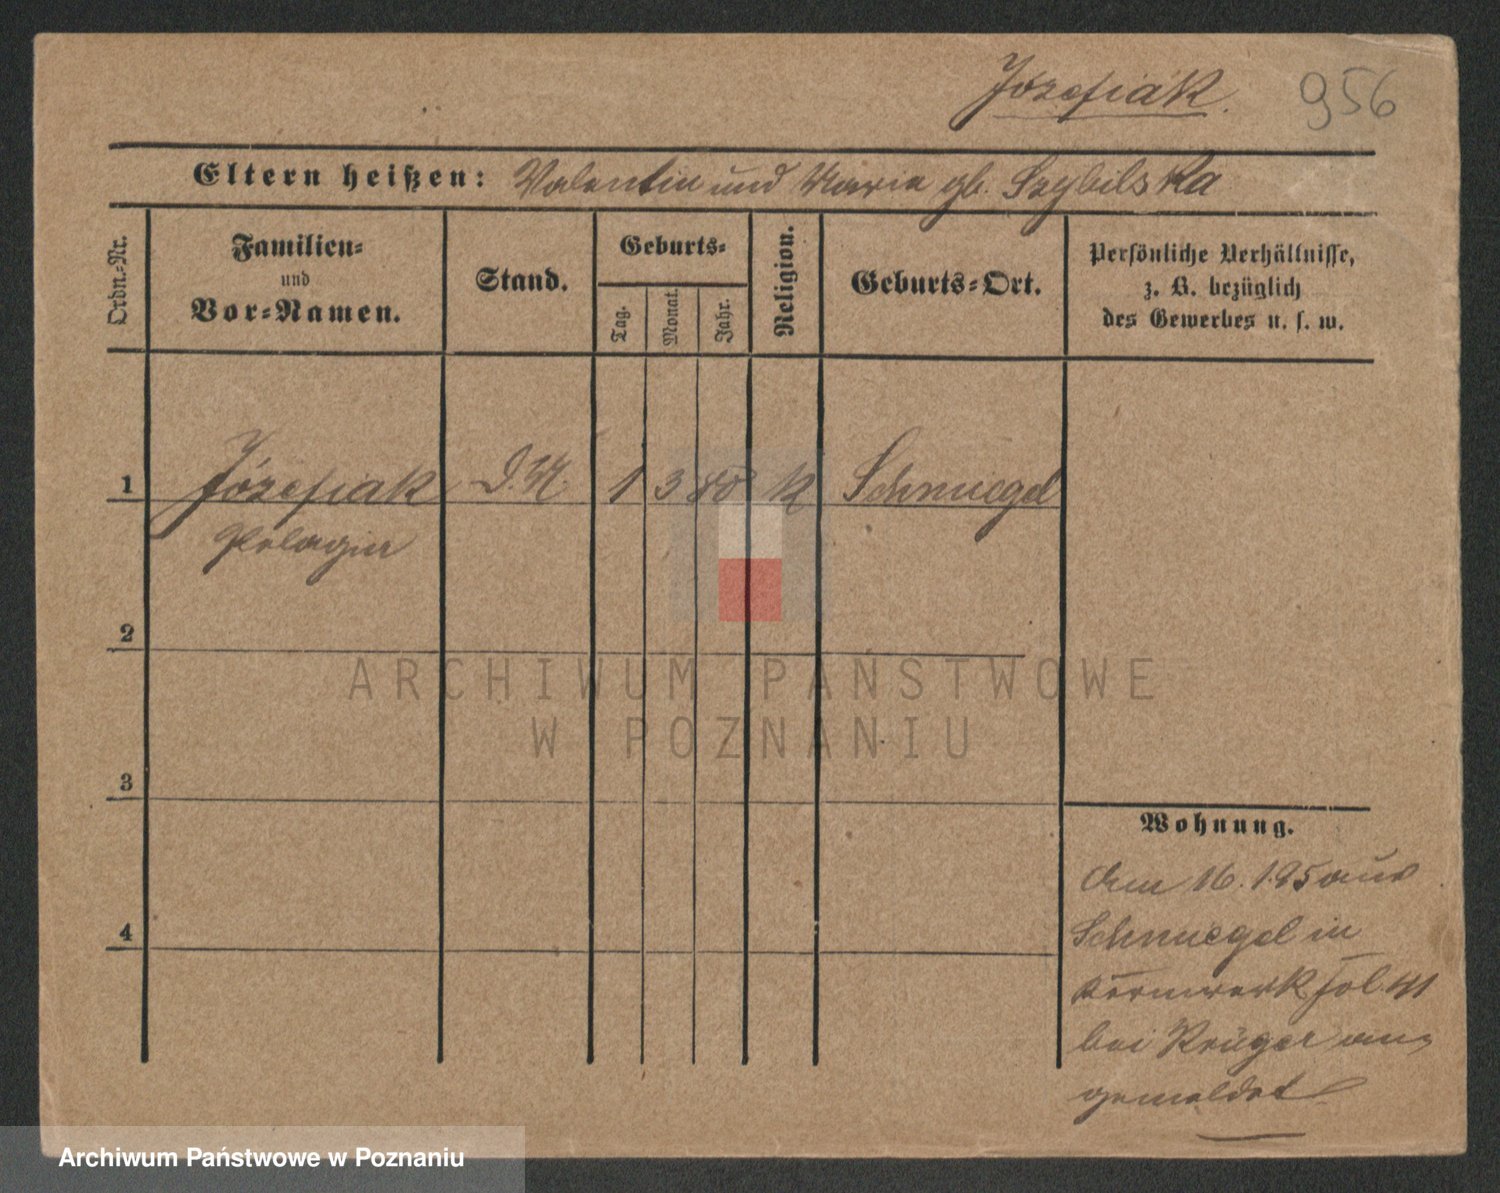 Józefiak. 956
Eltern heißen: Valentin und Maria gb. Szybilska
Ordn.-Nr.
Familien-
und
Vor-Namen.
Stand.
Geburts-
Tag.
Monat.
Jahr.
Religion.
Geburts-Ort.
Persönliche Verhältnisse,
z. B. bezüglich
des Gewerbes u. s. w.
1 Józefiak D.M. 1 3 80 k Schmiegel
Pelagia
2
3
4
Wohnung.
Am 16.1.95 aus
Schmiegel in
Kernwerk fol. 41
bei Krüger an-
gemeldet
ARCHIWUM PAŃSTWOWE
W POZNANIU
Archiwum Państwowe w Poznaniu